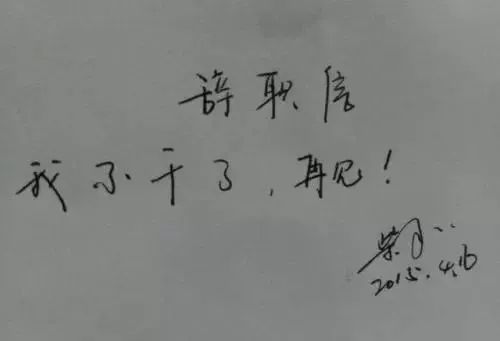 辞职信
我不干了，再见！
2015.4.16